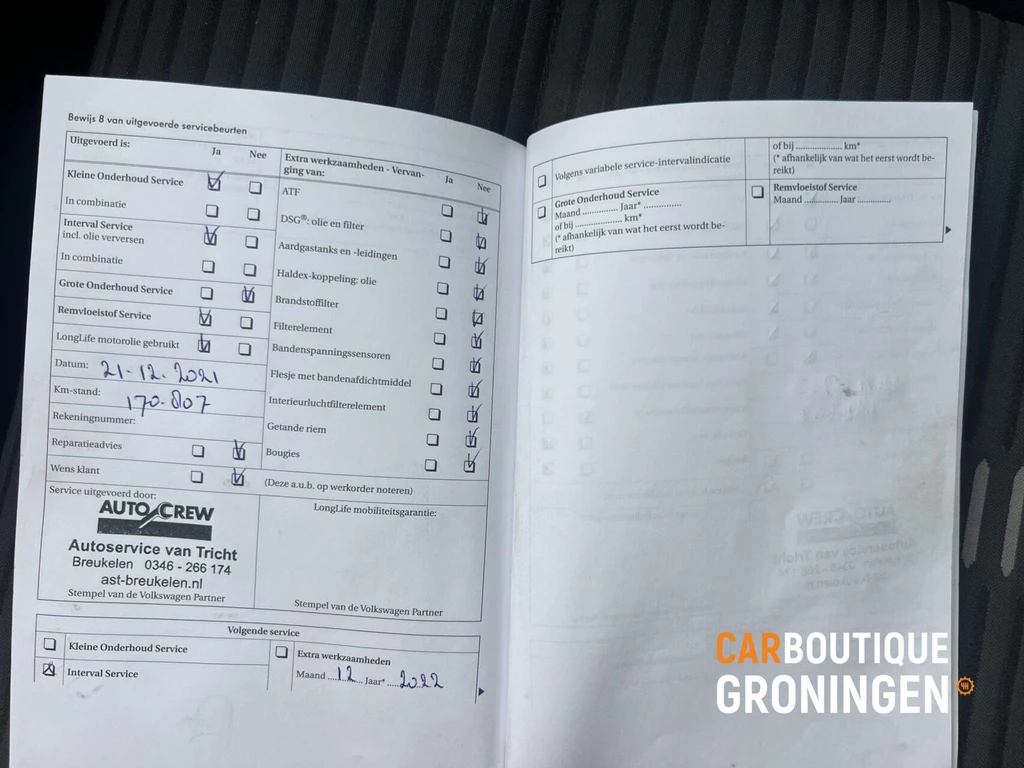 Bewijs 8 van uitgevoerde servicebeurten
Uitgevoerd is:
Ja Nee
Kleine Onderhoud Service
In combinatie
Interval Service
incl. olie verversen
In combinatie
Grote Onderhoud Service
Remvloeistof Service
LongLife motorolie gebruikt
Datum: 21-12-2021
Km-stand: 170.807
Rekeningnummer:
Reparatieadvies
Wens klant
Extra werkzaamheden - Vervan-
ging van:
Ja Nee
ATF
DSG®: olie en filter
Aardgastanks en -leidingen
Haldex-koppeling: olie
Brandstoffilter
Filterelement
Bandenspanningssensoren
Flesje met bandenafdichtmiddel
Interieurluchtfilterelement
Getande riem
Bougies
(Deze a.u.b. op werkorder noteren)
Service uitgevoerd door:
AUTO CREW
Autoservice van Tricht
Breukelen 0346 - 266 174
ast-breukelen.nl
Stempel van de Volkswagen Partner
LongLife mobiliteitsgarantie:
Stempel van de Volkswagen Partner
Volgende service
Kleine Onderhoud Service
Interval Service
Extra werkzaamheden
Maand ...12... Jaar* ...2022
Volgens variabele service-intervalindicatie
of bij .................. km*
(* afhankelijk van wat het eerst wordt be-
reikt)
Grote Onderhoud Service
Maand ............. Jaar* ..............
of bij .................. km*
(* afhankelijk van wat het eerst wordt be-
reikt)
Remvloeistof Service
Maand ............. Jaar .............
CARBOUTIQUE
GRONINGEN